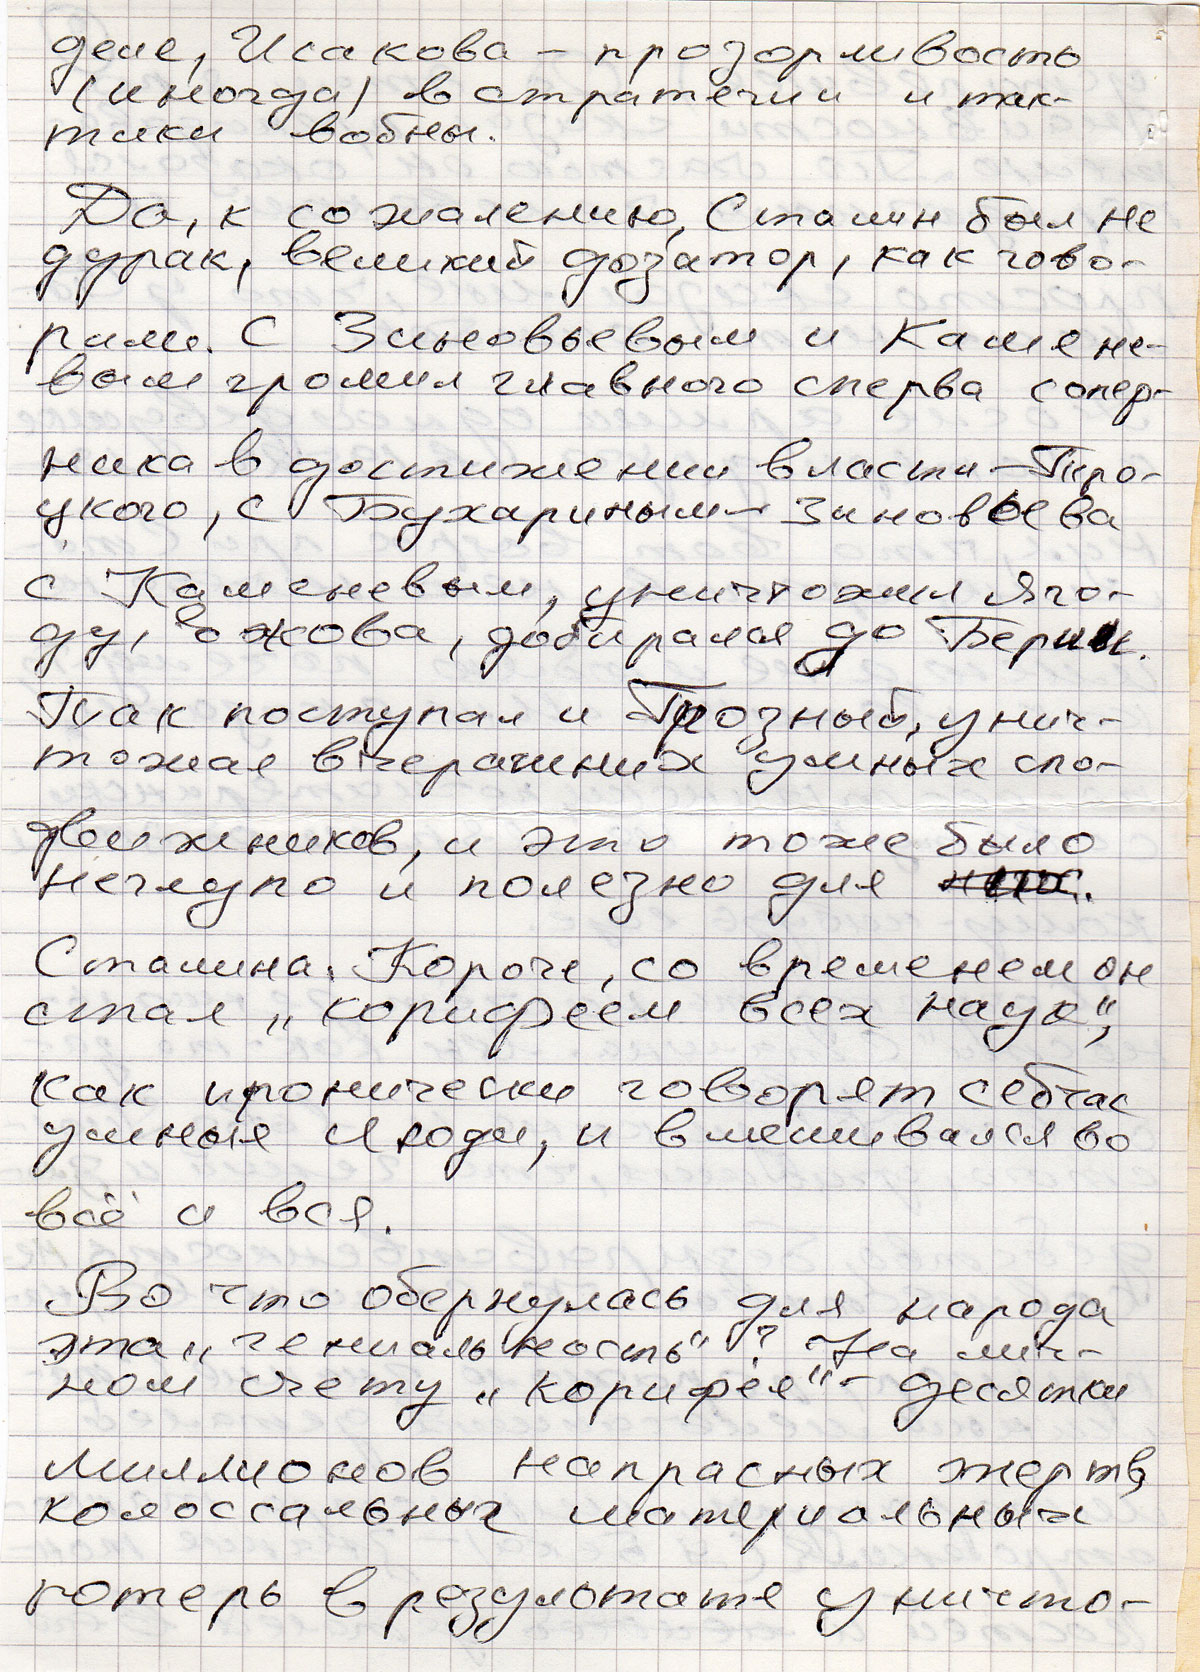 деле, Исакова – прозорливость
(иногда) в стратегии и так-
тики войны.
Да, к сожалению, Сталин был не
дурак, великий дозатор, как гово-
рили. С Зиновьевым и Камене-
вым громил главного сперва сопер-
ника в достижении власти – Тро-
цкого, с Бухариным – Зиновьева
с Каменевым, уничтожил Яго-
ду, Ежова, добирался до Берии.
Так поступал и Грозный, унич-
тожая вчерашних умных спо-
движников, и это тоже было
неглупо и полезно для
Сталина. Короче, со временем он
стал „корифеем всех наук“,
как иронически говорят сейчас
умные люди, и вмешивался во
всё и вся.
Во что обернулась для народа
эта „гениальность“? На лич-
ном счету „корифея“ – десятки
миллионов напрасных жертв,
колоссальных материальных
потерь в результате уничто-